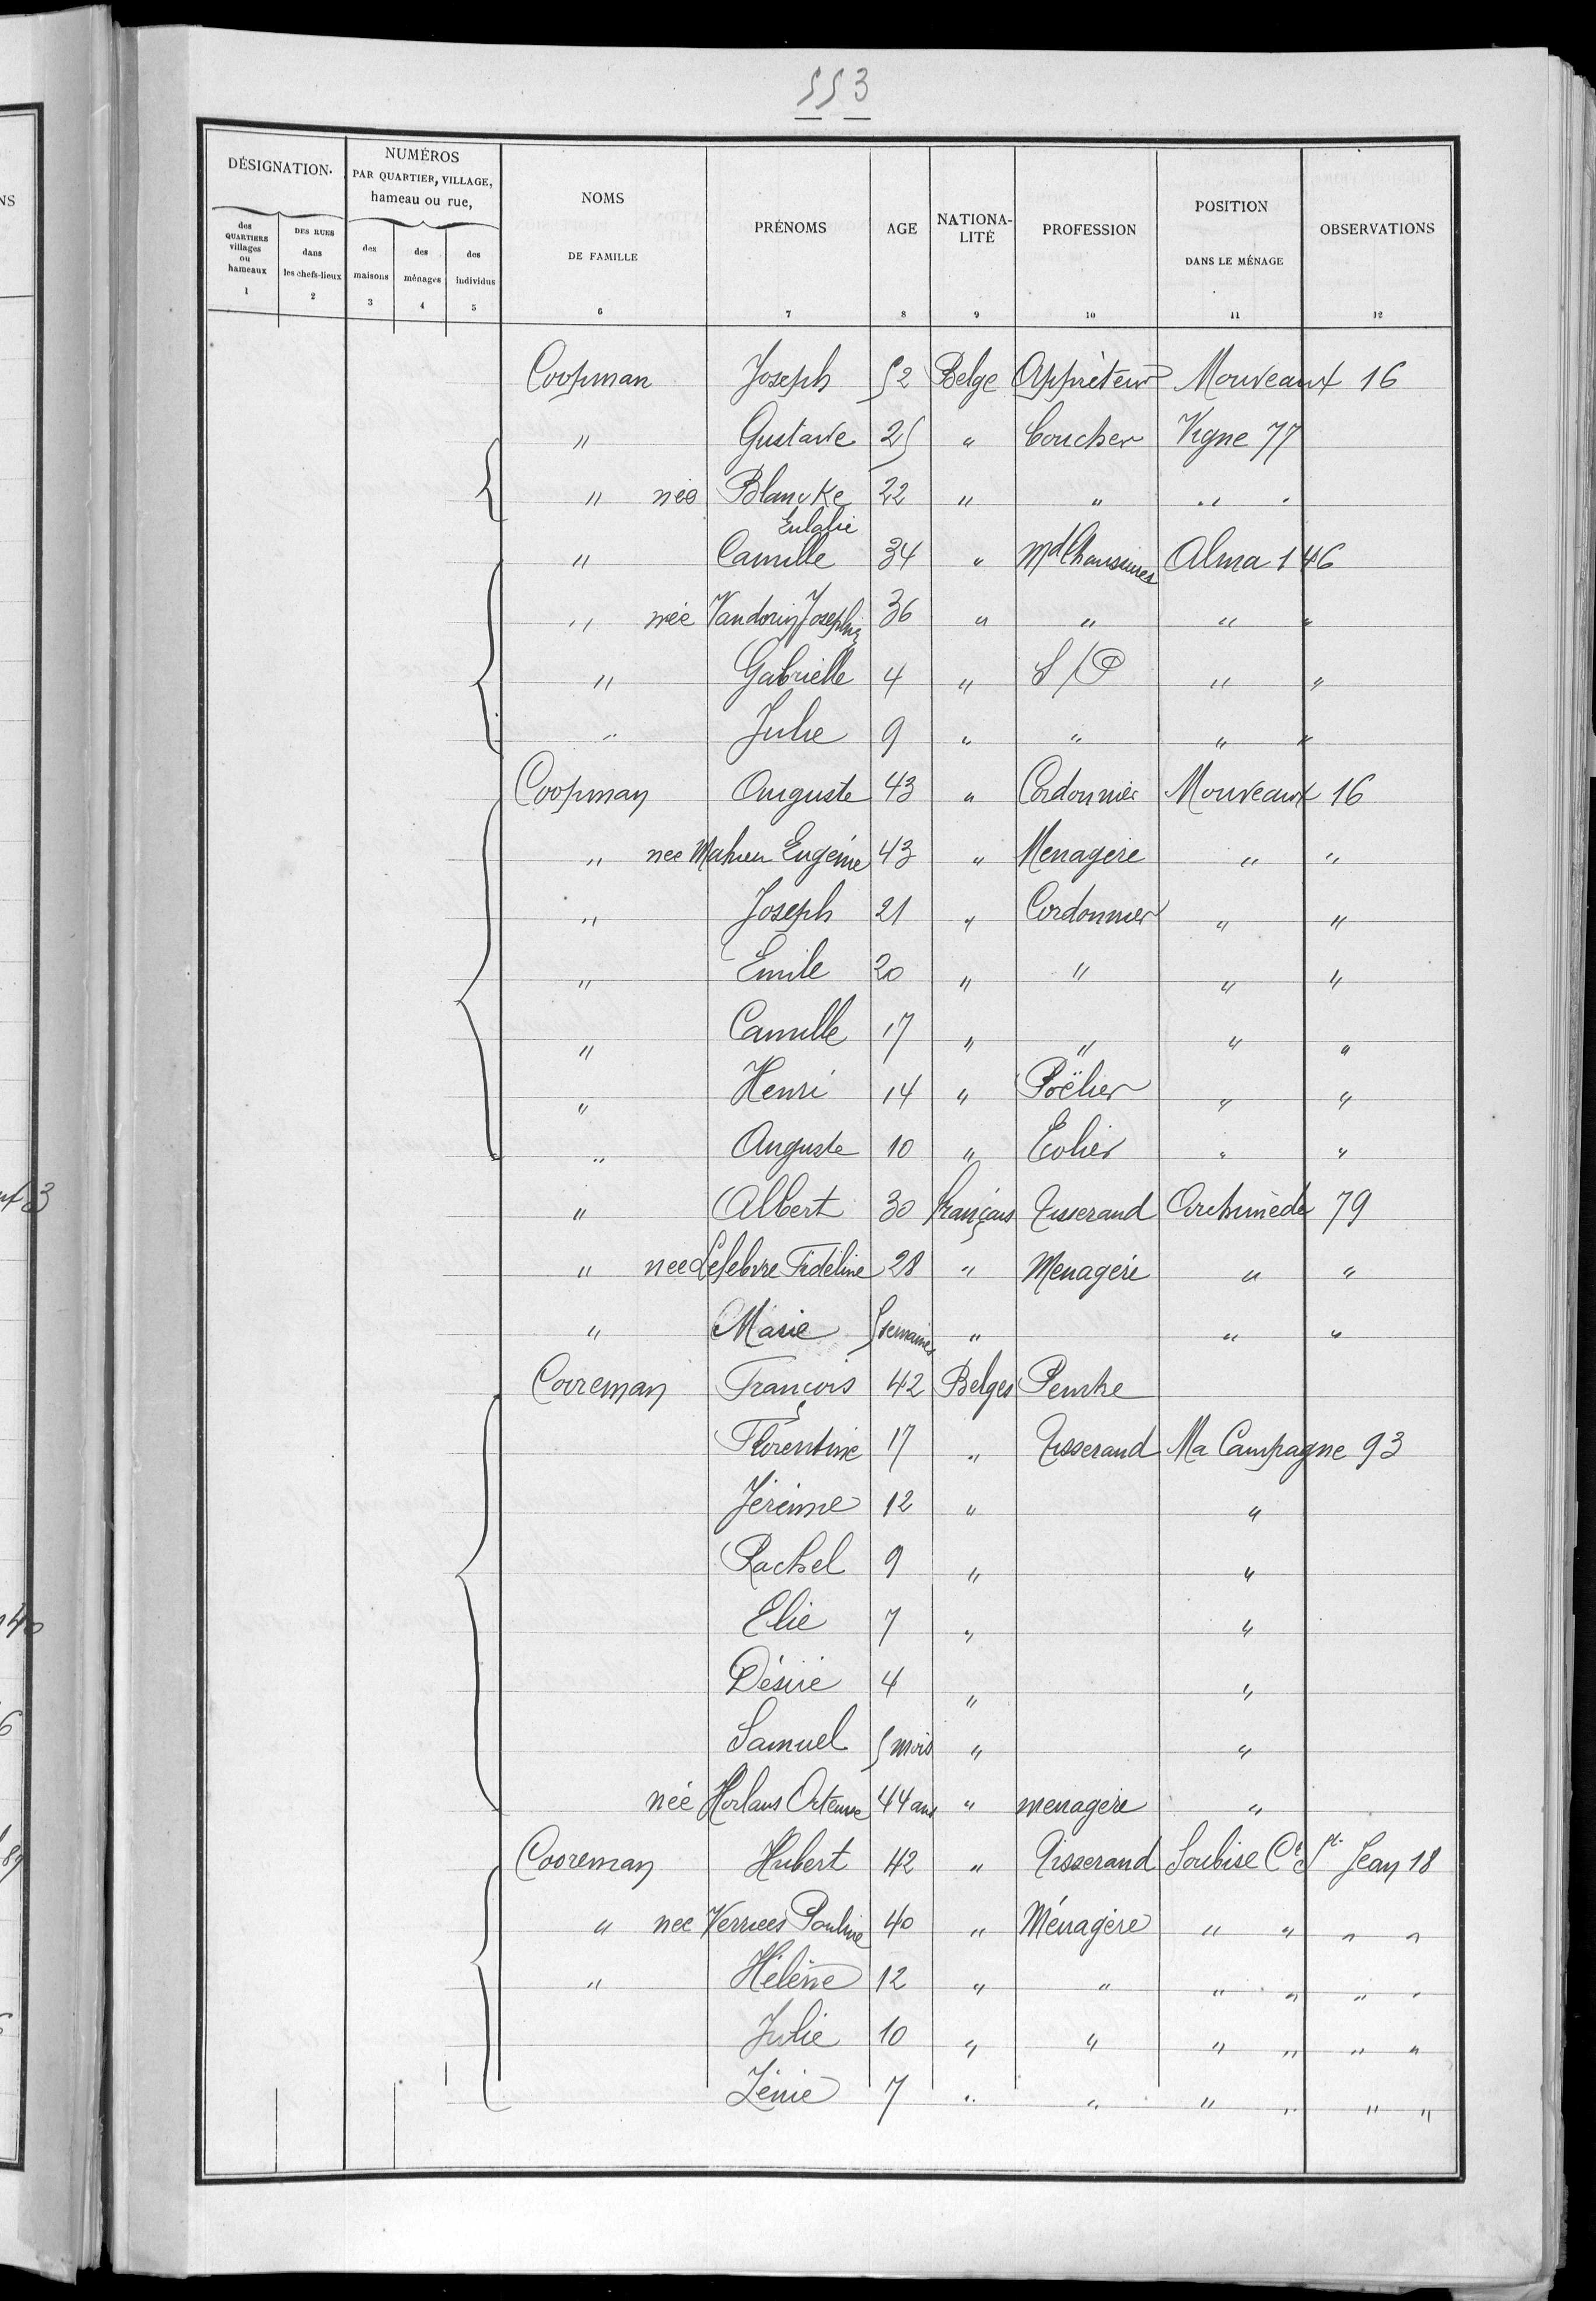 553
DÉSIGNATION. NUMÉROS PAR QUARTIER, VILLAGE, hameau ou rue, NOMS DE FAMILLE PRÉNOMS AGE NATIONA-LITÉ PROFESSION POSITION DANS LE MÉNAGE OBSERVATIONS
des QUARTIERS villages ou hameaux DES RUES dans les chefs-lieux des maisons des ménages des individus
1 2 3 4 5 6 7 8 9 10 11 12
Coopman Joseph 52 Belge Apprêteur Mouveaux 16
" Gustave 25 " Coucher Vigne 77
" née Blancke Eulalie 22 " " " "
" Camille 34 " Md Chaussures Alma 146
" née Vandorin Josephine 36 " " " "
" Gabrielle 4 " S/P " "
" Julie 9 " " " "
Coopman Auguste 43 " Cordonnier Mouveaux 16
" nee Mahieu Eugénie 43 " Menagère " "
" Joseph 21 " Cordonnier " "
" Emile 20 " " " "
" Camille 17 " " " "
" Henri 14 " Poëlier " "
" Auguste 10 " Ecolier " "
" Albert 30 français Tisserand Archimède 79
" nee Lefebvre Fidéline 28 " Menagère " "
" Marie 5 semaines " " "
Cooreman François 42 Belges Peintre
Florentine 17 " Tisserand Ma Campagne 93
Jérémie 12 " "
Rachel 9 " "
Elie 7 " "
Désiré 4 " "
Samuel 5 mois " "
née Horlans Ortense 44 ans " menagère "
Cooreman Hubert 42 " Tisserand Soubise Cr St Jean 18
" nee Pauline 40 " Ménagère " " " "
" Hélène 12 " " " " " "
Julie 10 " " " " " "
Zénie 7 " " " " " "